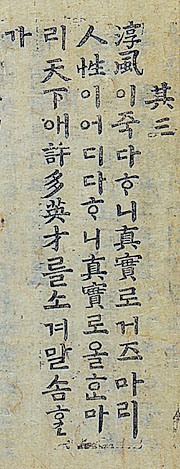 其三
淳風이죽다ᄒᆞ니真實로거즈마리
人性이어디다ᄒᆞ니真實로올ᄒᆞᆫ마
리天下애許多英才를소겨말솜ᄒᆞᆯ
가